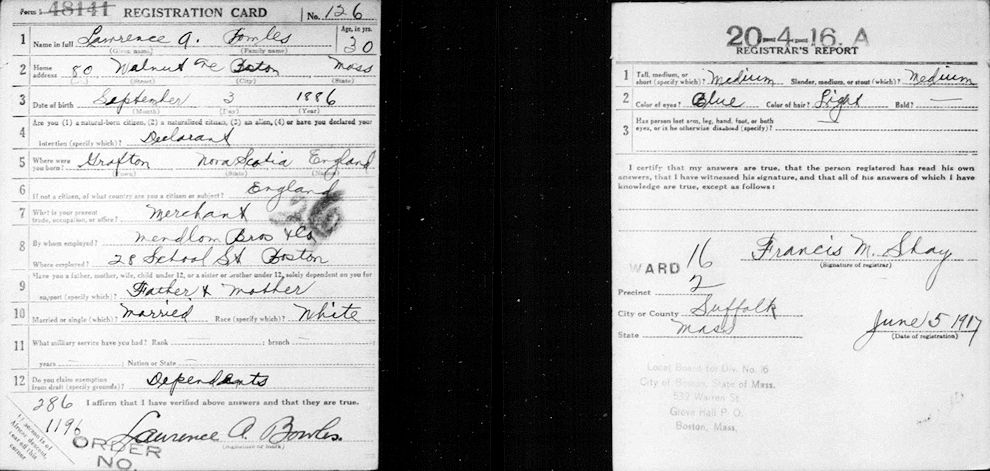 Form 1 48141 REGISTRATION CARD No. 126
1 Name in full Lawrence A. Fowles Age, in yrs. 30
(Given name) (Family name)
2 Home address 80 Walnut Ave Boston Mass
(No.) (Street) (City) (State)
3 Date of birth September 3 1886
(Month) (Day) (Year)
4 Are you (1) a natural-born citizen, (2) a naturalized citizen, (3) an alien, (4) or have you declared your
intention (specify which)? Declarant
5 Where were you born? Grafton Nova Scotia England
(Town) (State) (Nation)
6 If not a citizen, of what country are you a citizen or subject? England
7 What is your present trade, occupation, or office? Merchant
8 By whom employed? Mendlom Bros & Co
Where employed? 28 School St Boston
9 Have you a father, mother, wife, child under 12, or a sister or brother under 12, solely dependent on you for
support (specify which)? Father & Mother
10 Married or single (which)? Married Race (specify which)? White
11 What military service have you had? Rank — ; branch —
years — ; Nation or State —
12 Do you claim exemption from draft (specify grounds)? Dependents
286 I affirm that I have verified above answers and that they are true.
1196
Lawrence A. Bowles.
(Signature or mark)
ORDER
NO.
20-4-16. A
REGISTRAR'S REPORT
1 Tall, medium, or short (specify which)? Medium Slender, medium, or stout (which)? Medium
2 Color of eyes? Blue Color of hair? Light Bald? —
3 Has person lost arm, leg, hand, foot, or both
eyes, or is he otherwise disabled (specify)? —
I certify that my answers are true, that the person registered has read his own
answers, that I have witnessed his signature, and that all of his answers of which I have
knowledge are true, except as follows:
Francis M. Shay
(Signature of registrar)
WARD 16
Precinct 2
City or County Suffolk
State Mass
June 5 1917
(Date of registration)
Local Board for Div. No. 16
City of Boston, State of Mass.
532 Warren St.
Grove Hall P. O.
Boston, Mass.